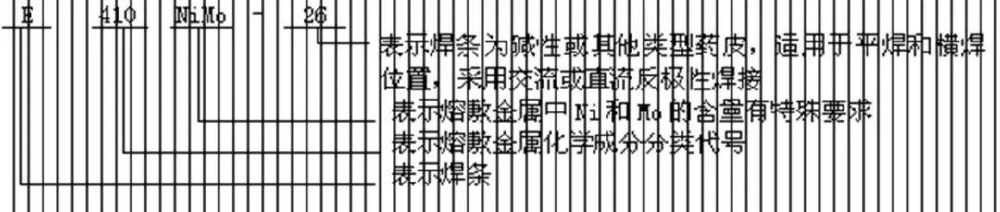 E 410 NiMo - 26
表示焊条为碱性或其他类型药皮，适用于平焊和横焊
位置，采用交流或直流反极性焊接
表示熔敷金属中Ni和Mo的含量有特殊要求
表示熔敷金属化学成分分类代号
表示焊条